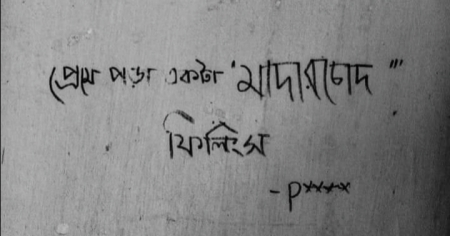 প্রেমে পড়া একটা "মাদারচোদ"
ফিলিংস
-P****